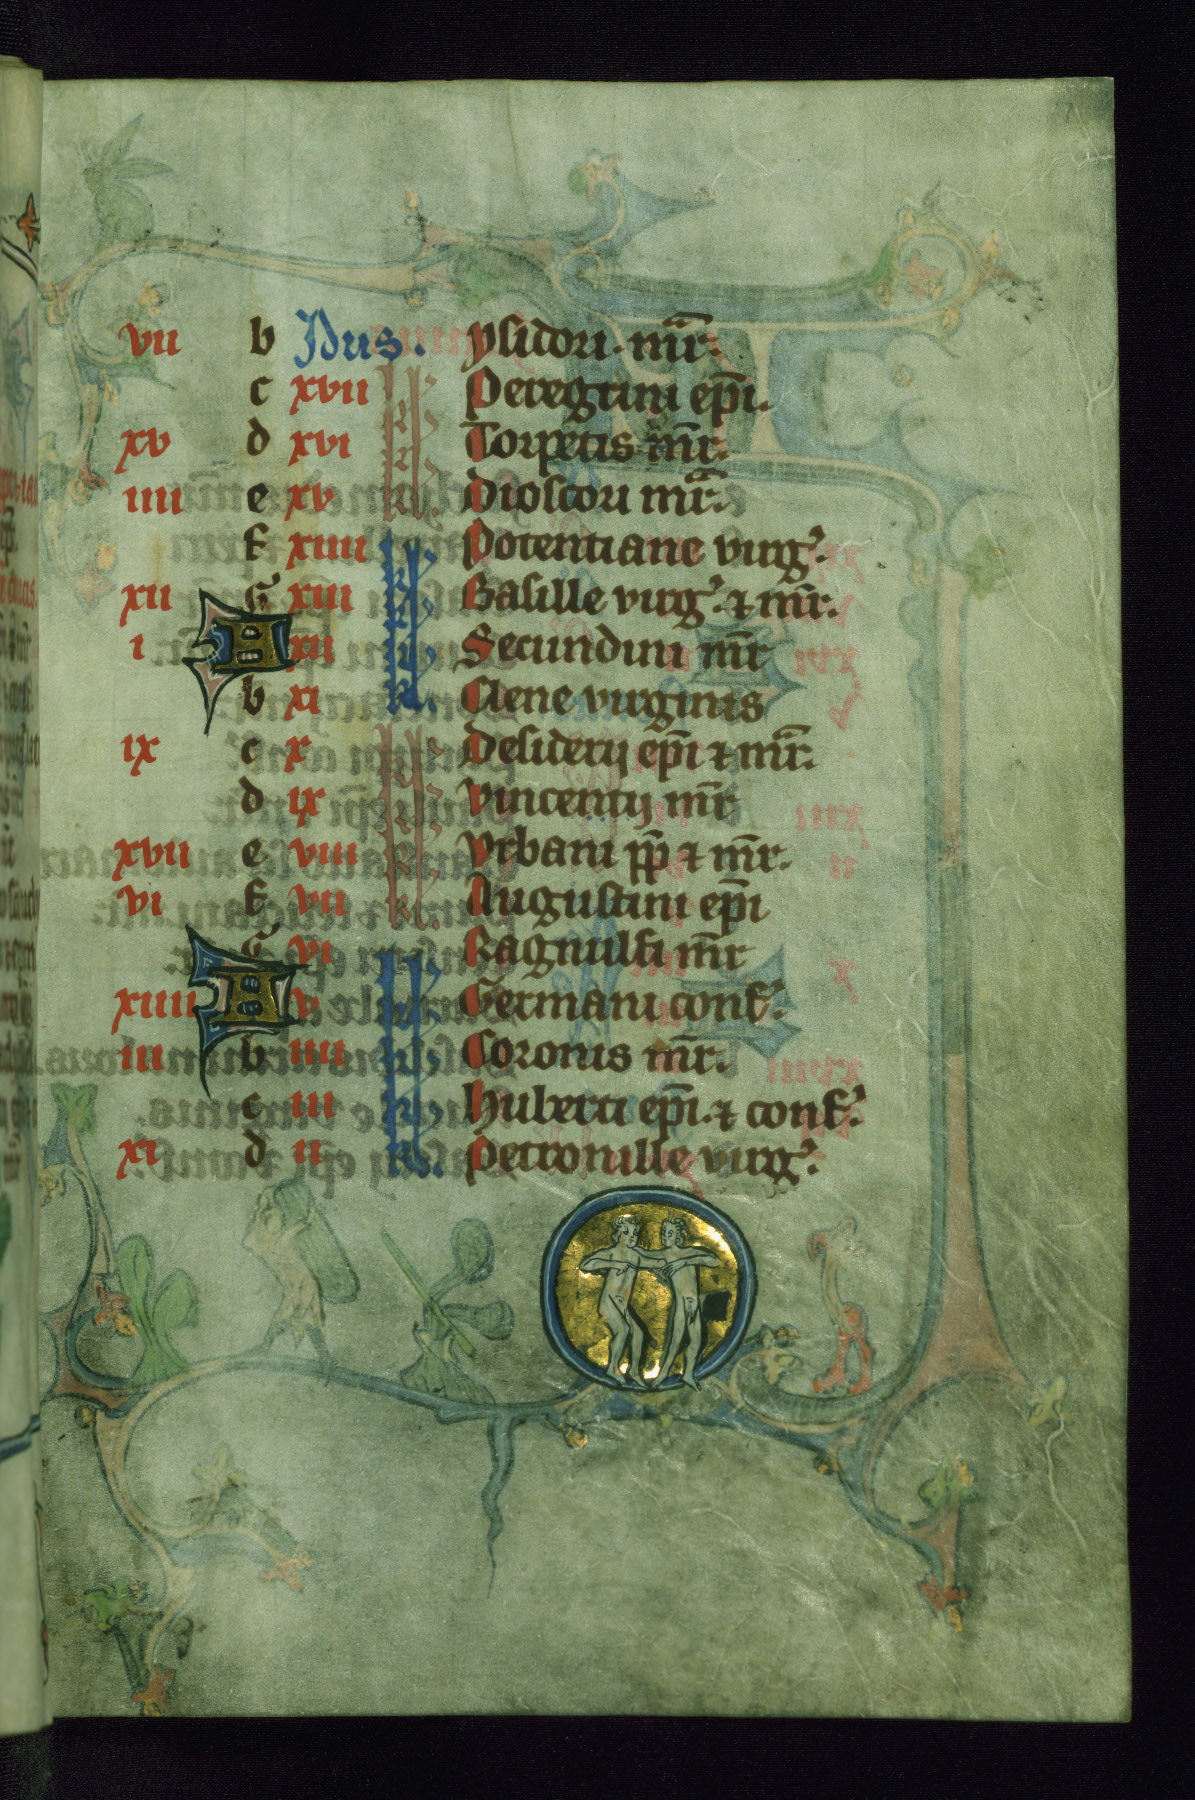 vii b Idus. ysidori. mr̄.
c xvii kl̄ Peregrini ep̄i.
xv d xvi kl̄ Torpetis mr̄.
iiii e xv kl̄ Dioscori mr̄.
f xiiii kl̄ Potentiane virgꝰ.
xii G xiii kl̄ Basille virgꝰ. ⁊ mr̄r.
i A xii kl̄ Secundini mr̄
b xi kl̄ Elene virginis
ix c x kl̄ Desiderij ep̄i ⁊ mr̄.
d ix kl̄ vincentij mr̄
xvii e viii kl̄ vrbani pp̄ ⁊ mr̄.
vi f vii kl̄ Augustini ep̄i
G vi kl̄ Ragnulfi mr̄
xiiii A v kl̄ Germani conf.
iii b iiii kl̄ Coronis mr̄.
c iii kl̄ huberti ep̄i. ⁊ conf.
xi d ii kl̄. Petronille virgꝰ.